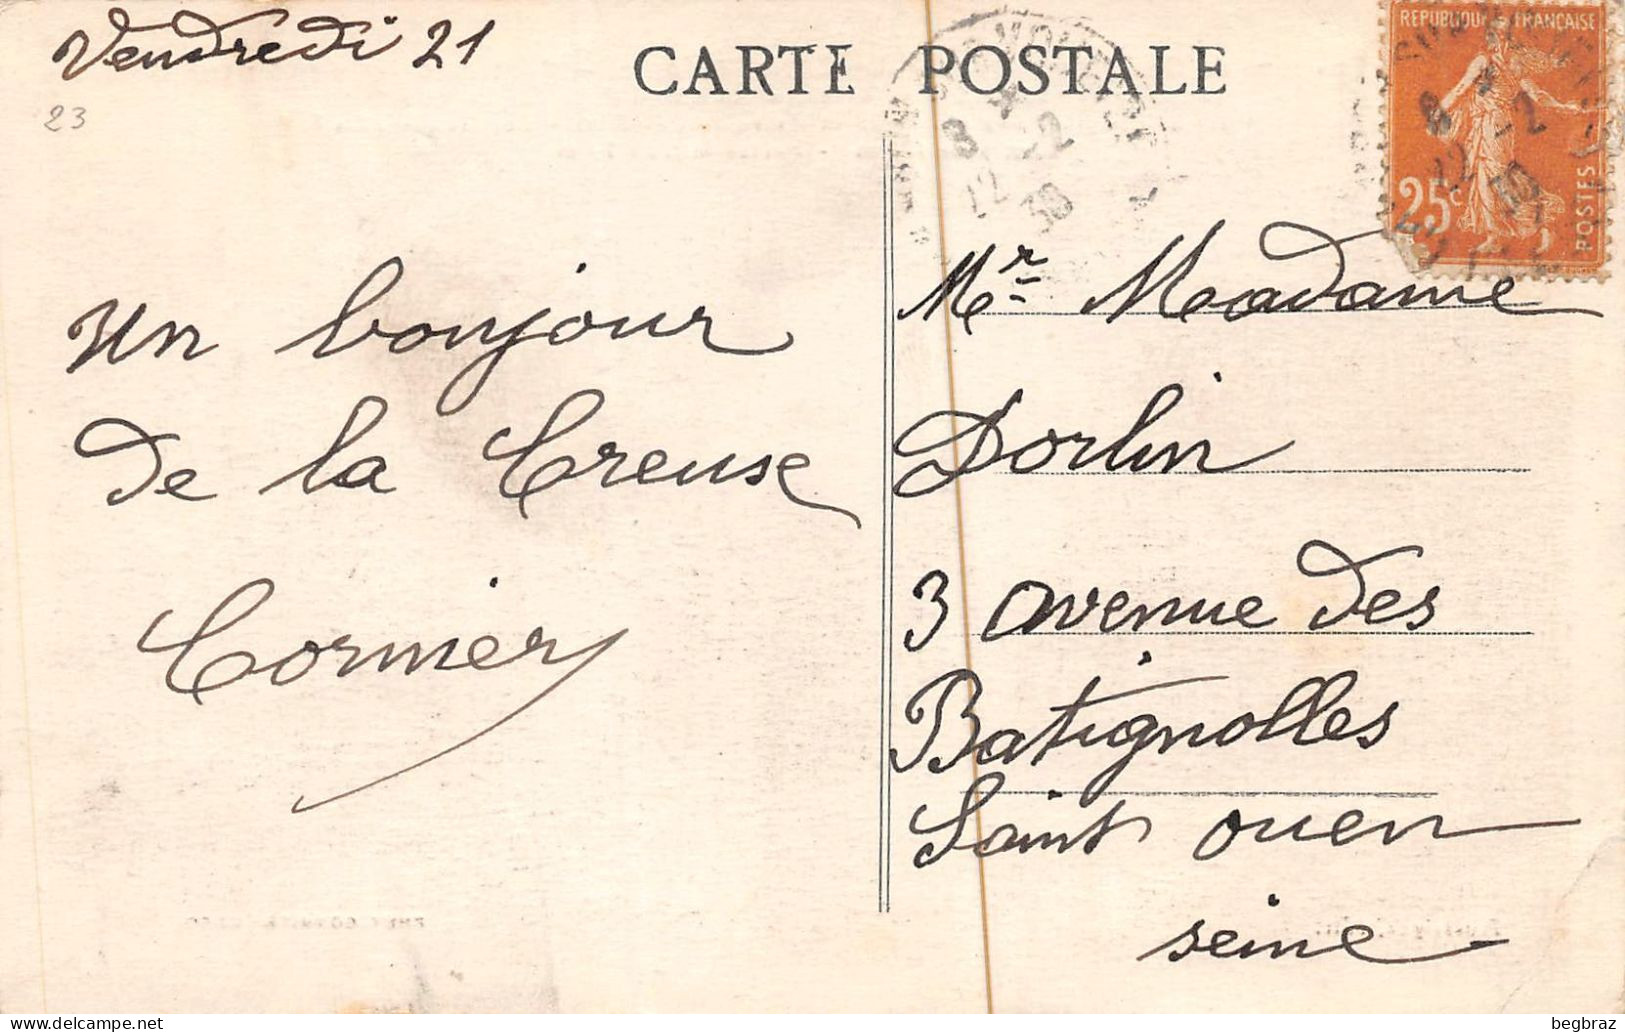 Vendredi 21
23
CARTE POSTALE
REPUBLIQUE FRANÇAISE
25c
POSTES
8 *
22 -2
30
Un bonjour
de la Creuse
Cormier
Mr Madame
Dorlin
3 avenue des
Batignolles
Saint ouen
seine
begbraz